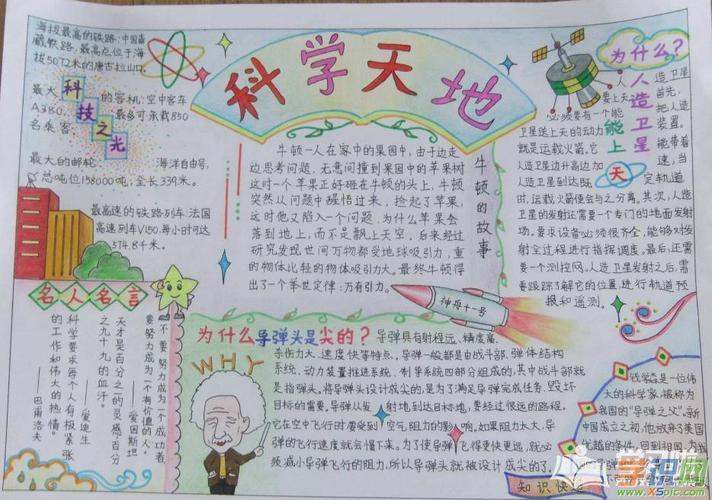 科学天地
海拔最高的铁路:中国青
藏铁路,最高点位于海
拔5072米的唐古拉山口。
科技之光
最大的客机:空中客车
A380,最多可承载850
名乘客
最大的邮轮 海洋自由号,
总吨位158000吨,全长339米。
最高速的铁路列车:法国
高速列车V150,每小时可达
574.8千米
名人名言
不要努力成为一个成功者,
要努力成为一个有价值的人。
——爱因斯坦
天才是百分之一的灵感,百分
之九十九的血汗。
——爱迪生
科学要求每个人有极紧张
的工作和伟大的热情。
——巴甫洛夫
牛顿的故事
牛顿一人在家中的果园中,由于边走
边思考问题,无意间撞到果园中的苹果树
这时一个苹果正好砸在牛顿的头上,牛顿
突然从问题中醒悟过来,捡起了苹果,
这时他又陷入一个问题,为什么苹果会
落到地上,而不是飘上天空,后来经过
研究发现世间万物都受地球吸引力,重
的物体比轻的物体吸引力大。最终牛顿得
出了一个举世定律:万有引力。
神舟十一号
为什么?
人造卫星能上天
人造卫星
要上天,首先,
必须要有一个能把人造
卫星送上天的动力装置,
就是运载火箭,它能带着
人造卫星边升高边加速,当
人造卫星到达既定轨道
时,运载火箭便会与之分离。其次,人造
卫星的发射还需要一个专门的地面发射
场,要求设备必须很齐全,能够对发
射全过程进行指挥调度。最后,还需
要一个测控网,人造卫星发射之后,需
要跟踪了解它的位置,进行轨道预
报和遥测。
为什么导弹头是尖的?
WHY
导弹具有射程远、精度高、
杀伤力大、速度快等特点,导弹一般都是由战斗部、弹体结构
系统、动力装置推进系统、制导系统四部分组成的,其中战斗部就
是指弹头。将导弹头设计成尖的,是为了满足导弹完成任务、毁坏
目标的需要。导弹从发射地,到达目标地,要经过很远的路程。
它在空中飞行时要受到空气阻力的影响,如果阻力太大,导
弹的飞行速度就会慢下来。为了使导弹飞得更快更远,就必
须减小导弹飞行的阻力,所以导弹头就被设计成尖的了。
钱学森是一位伟
大的科学家,被称为
我国的“导弹之父”。新
中国成立之初,他放弃了美国
优越的条件,回到祖国,为我
知识快
学识网
www.xspic.com